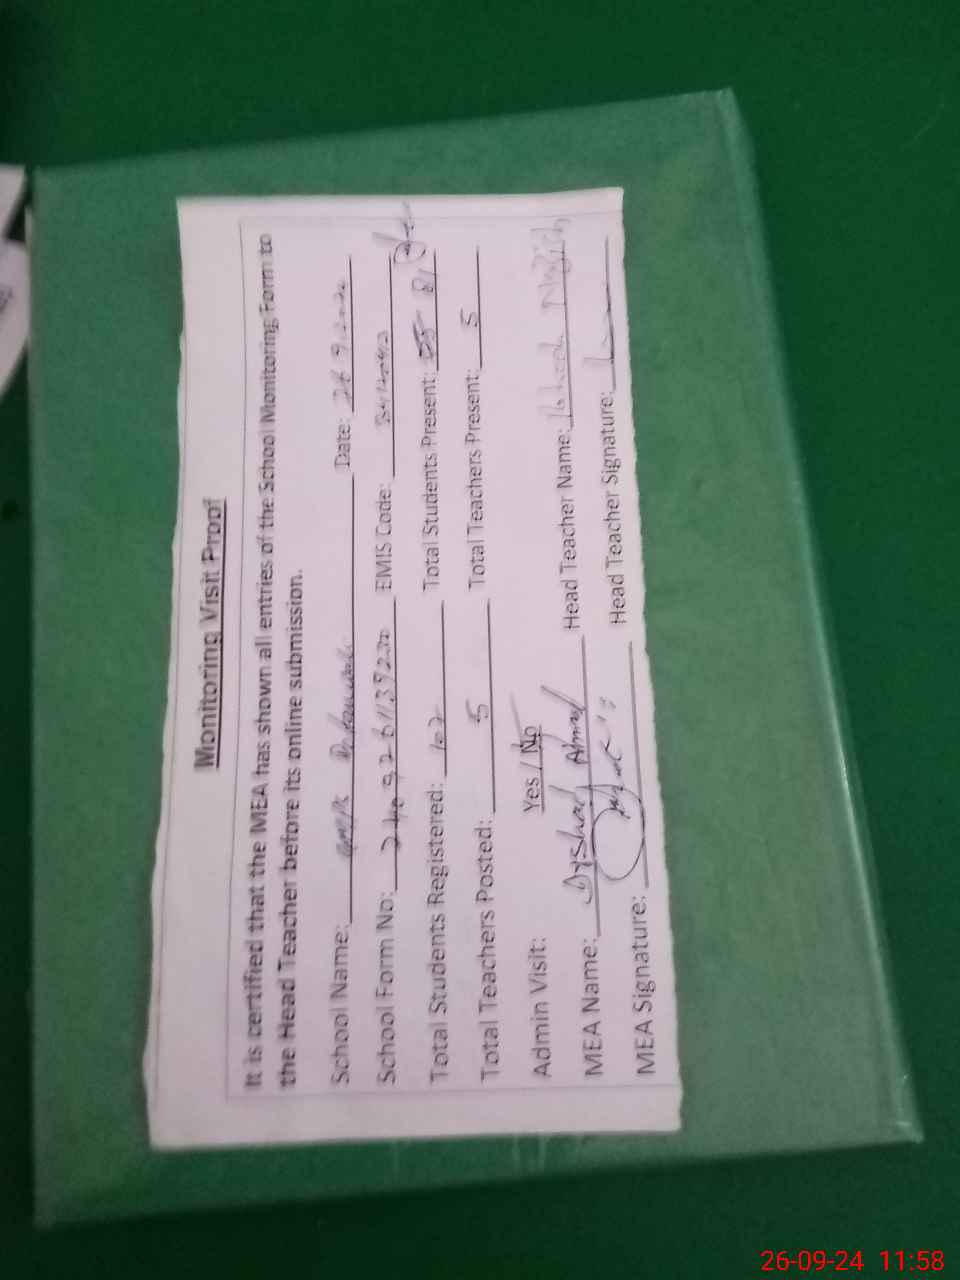 Monitoring Visit Proof
It is certified that the MEA has shown all entries of the School Monitoring Form to
the Head Teacher before its online submission.
School Name: Date: 26 9
School Form No: EMIS Code:
Total Students Registered: 107 Total Students Present: 81
Total Teachers Posted: 5 Total Teachers Present: 5
Admin Visit: Yes / No
MEA Name: Arshad Ahmad Head Teacher Name:
MEA Signature: Head Teacher Signature:
26-09-24 11:58